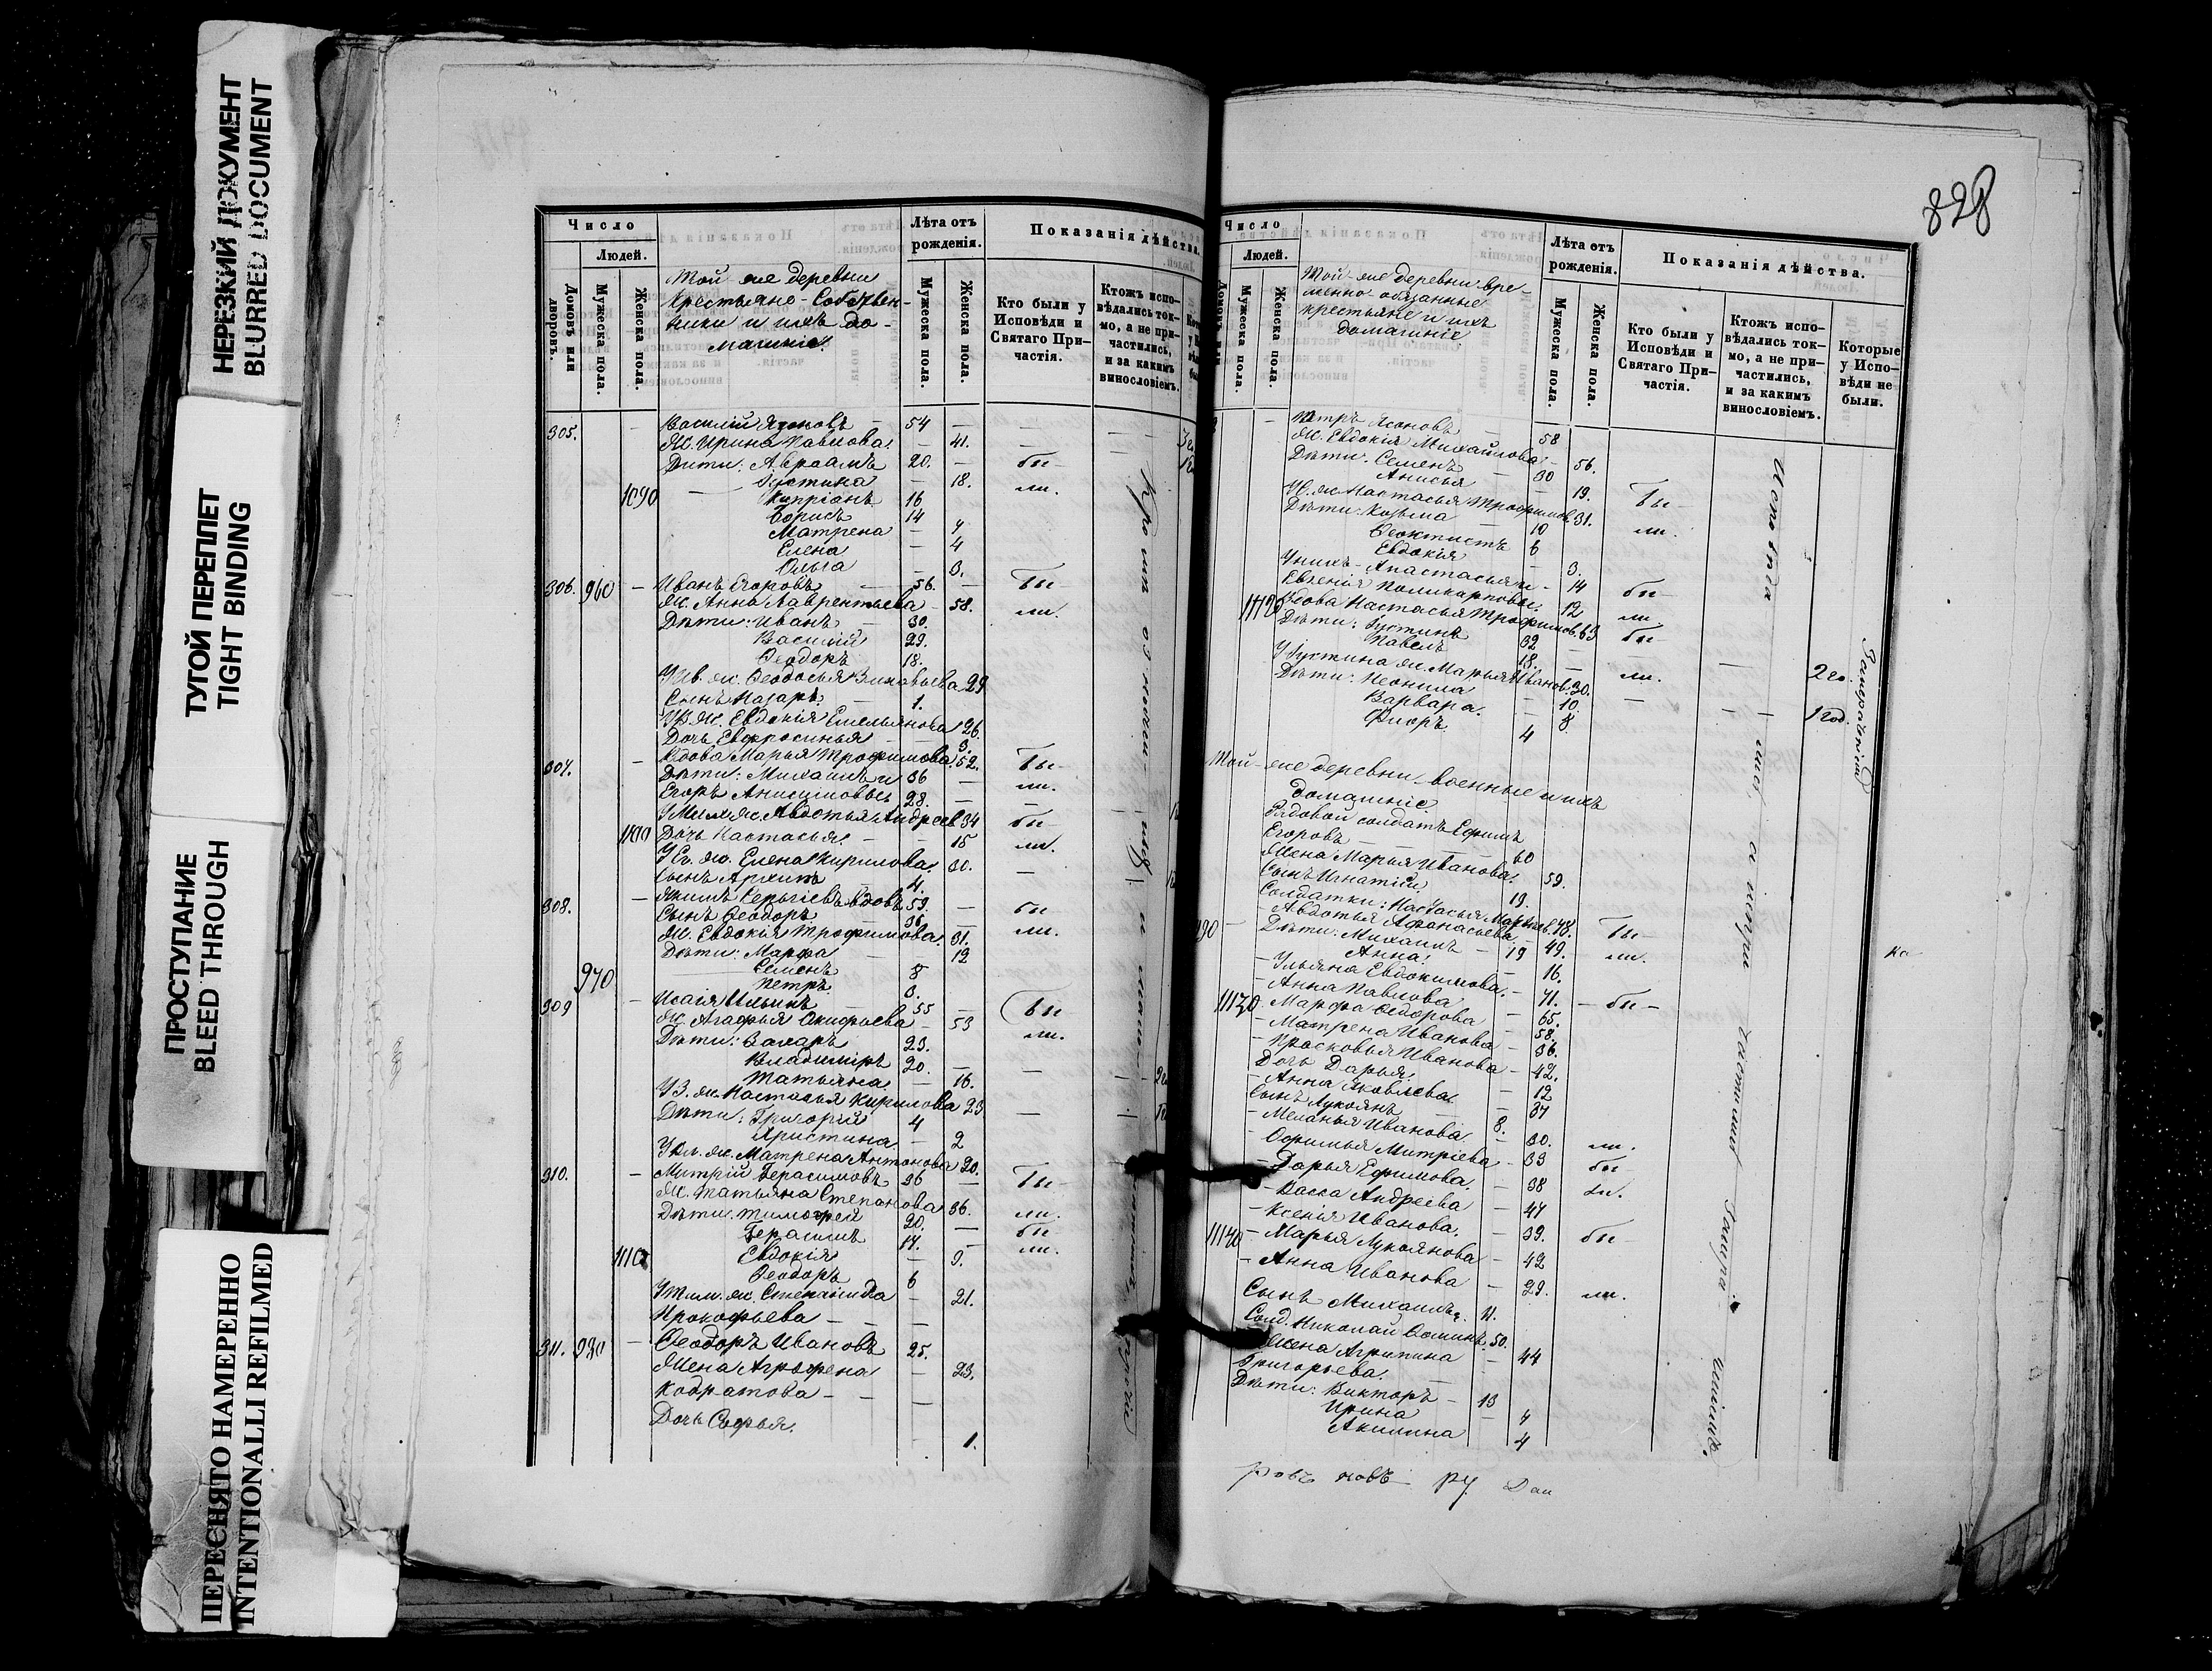 НЕРЕЗКИЙ ДОКУМЕНТ
BLURRED DOCUMENT
ТУГОЙ ПЕРЕПЛЕТ
TIGHT BINDING
ПРОСТУПАНИЕ
BLEED THROUGH
ПЕРЕСНЯТО НАМЕРЕННО
INTENTIONALLI REFILMED
Число
Людей.
Домовъ или дворовъ.
Мужеска пола.
Женска пола.
Той же деревни
Крестьяне-Собствен-
ники и ихъ до-
машніе.
Лѣта отъ рожденія.
Мужеска пола.
Женска пола.
Показанія дѣйства.
Кто были у Исповѣди и Святаго Причастія.
Ктожъ исповѣдались токмо, а не причастились, и за какимъ винословіемъ.
305. — Василій Язоновъ — 54 —
Ж. Ирина Павлова. — 41.
Дѣти: Авраамъ 20. — бы-
Іустина — 18. ли.
1090 — Кипріанъ 16
Борисъ 14
Матрена — 7
Елена — 4
Ольга — 3.
306. 960 — Иванъ Егоровъ — 56. — бы-
Ж. Анна Лаврентьева — 58. ли.
Дѣти: Иванъ — 30.
Василій 29.
Ѳеодоръ 18.
У Ив. ж. Ѳеодосья Зиновьева 29
Сынъ Назаръ. — 1.
У В. ж. Евдокія Емельянова 26.
Дочь Евфросинья — 3.
307. — Вдова Марья Трофимова. 52. бы-
Дѣти: Михаилъ и 36 — ли.
Егоръ Анисимовы 28. —
У Мих. ж. Авдотья Андреев. 34 бы-
1100 Дочь Настасья. — 15 ли.
У Ег. ж. Елена Кирилова. 30.
Сынъ Архипъ 4. —
308. — Якимъ Сергіевъ вдовъ 59. — бы-
Сынъ Ѳеодоръ 36. — ли.
Ж. Евдокія Трофимова. 31.
Дѣти: Марфа — 12
970 Семенъ 8
Петръ 3.
309 — Исаія Ильинъ — 55 — бы-
Ж. Агафья Онисьева — 53 ли.
Дѣти: Захаръ 23.
Владиміръ 20. —
Татьяна. — 16. —
У З. ж. Настасья Кирилова 23 —
Дѣти: Григорій 4
Христина — 2
У Вл. ж. Матрена Антонова 20.
310. — Митрій Герасимовъ 36 — бы-
Ж. Татьяна Степанова 36. ли.
Дѣти: Тимофей 20. — бы-
Герасимъ 17. — ли.
1110 Евдокія — 9.
Ѳеодоръ 6
У Тим. ж. Степанида — 21.
Прокофьева — —
311. 980 — Ѳеодоръ Ивановъ 25.
Жена Аграфена — 23.
Кодратова — —
Дочь Софья. 1.
828
Число
Людей.
Мужеска пола.
Женска пола.
Той-же деревни вре-
менно обязанные
крестьяне и ихъ
домашніе.
Лѣта отъ рожденія.
Мужеска пола.
Женска пола.
Показанія дѣйства.
Кто были у Исповѣди и Святаго Причастія.
Ктожъ исповѣдались токмо, а не причастились, и за какимъ винословіемъ.
Которые у Исповѣди не были.
— Петръ Язоновъ — 58
Ж. Евдокія Михайлова — 56.
Дѣти: Семенъ — 30
Анисья — 19. бы-
У С. ж. Настасья Трофимов. 31. ли.
Дѣти: Козьма — 10
Ѳеоктистъ 6
Евдокія — 3.
У нихъ Анастасья и — 14 бы-
Евгенія Поликарповы. 12 ли
1120 Вдова Настасья Трофимов. 63 бы-
Дѣти: Іустинъ 32 —
Павелъ 18. — ли.
У Іустина ж. Марья Иванов. 30. — 2 го.
Дѣти: Неонила — 10. —
Варвара. — 8 — 1 год.
Флоръ. 4
Той-же деревни военные и ихъ
домашніе
Рядовой солдатъ Ефимъ
Егоровъ — 60
Жена Марья Иванова. 59.
Сынъ Игнатій. 19.
Солдатки: Настасья 48. бы-
990 — Авдотья Афанасьева — 49. ли.
Дѣти: Михаилъ — 19
Анна. — 16.
— Ульяна Евдокимова. — 71. — бы-
— Анна Павлова — 65.
1130 Марфа Ѳедорова — 58.
— Матрена Иванова — 36.
— Прасковья Иванова — 42.
Дочь Дарья. — 12
— Анна Яковлева. — 37
Сынъ Лукоянъ 8.
— Меланья Иванова. — 30. ли.
Офимья Митріева — 33 бы-
— Дарья Ефимова. — 38 ли.
— Васса Андреева — 47
— Ксенія Иванова. — 39. бы-
1140 — Марья Лукоянова — 42
— Анна Иванова — 29. ли.
Сынъ Михаилъ. 11.
Солд. Николай 50.
Жена Агрипина — 44
Григорьева. —
Дѣти: Викторъ — 13
Ирина — 7
Акилина 4